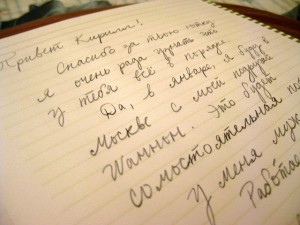 Привет Кирилл!
Спасибо за твою
Я очень рада что
у тебя всё в порядке.
Да, в январе, я буду в
Москве с моей подругой
Шаннон. Это будет
сомостоятельная
У меня муж
Работае